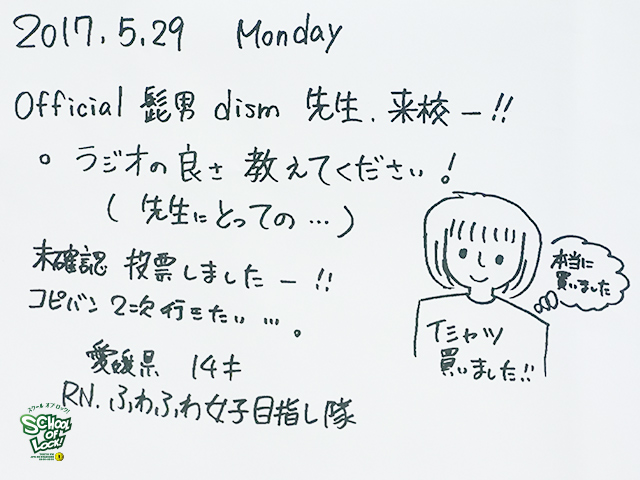 2017.5.29 Monday
Official 髭男 dism 先生、来校ー!!
ラジオの良さ 教えてください!
(先生にとっての…)
未確認 投票しましたー!!
コピバン 2次行きたい….
愛媛県 14才
RN.ふわふわ女子目指し隊
本当に
買いました
Tシャツ
買いました!!
スクール オブ ロック!
SCHOOL
OF
LOCK!